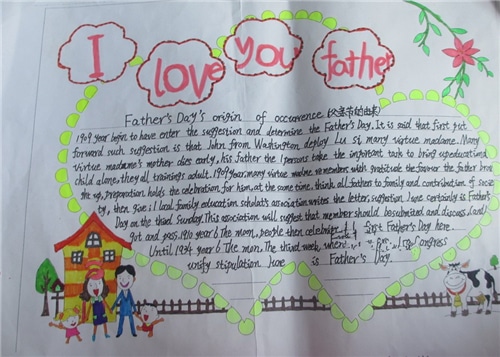 I love you father
Father's Day's origin of occurrence (父亲节的由来)
1909 year begin to have enter the suggestion and determine the Father's Day. It is said that first put
forward such suggestion is that John from Washington, deploy Lu si many virtue madame. Many
virtue madame's mother dies early, his father the 1 persons take the important task to bring up educational
child alone, they all trainings adult. 1909 year, many virtue madame remember with gratitude the favour the father bring
the up, preparation holds the celebration for him, at the same time, think all father to family and contribution of socie
ty, then, give i local family education scholat's association writes the letter, suggestion June certainly is Father's
Day on the third Sunday. This association will suggest that member should be submited and discuss, and
got and pass. 1910 year 6 The mon, people then celebrate first Father's Day here.
Until 1934 year 6 The mon. The third week, when Congress
unify stipulation June is Father's Day.